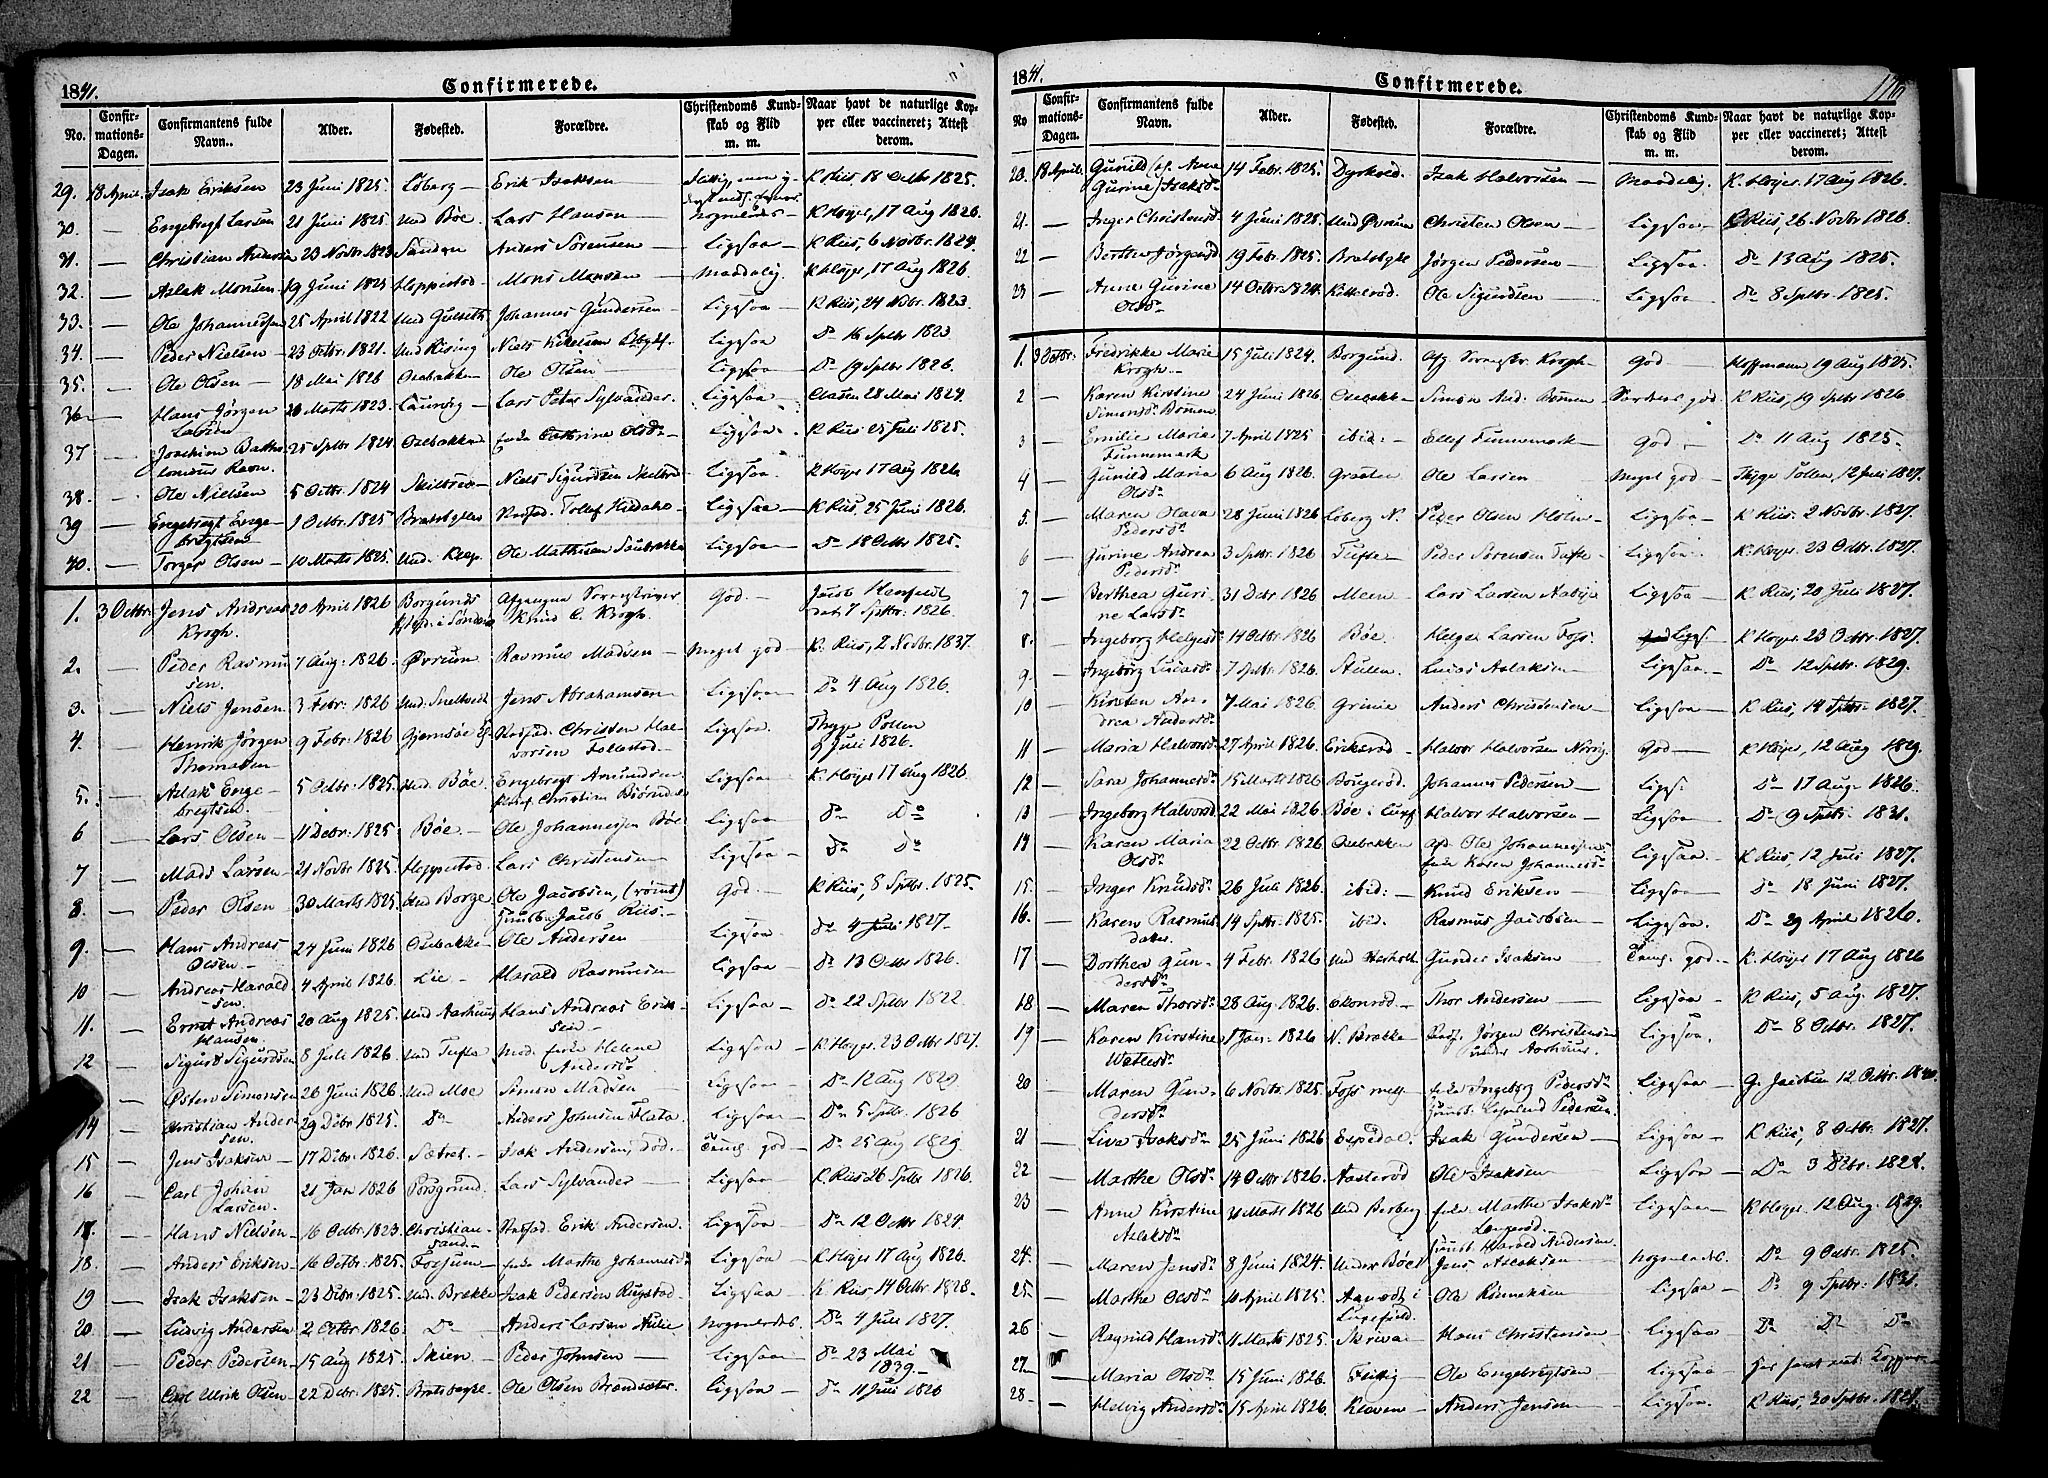 1841.
Confirmerede.
No.
Confirmations-Dagen.
Confirmantens fulde Navn.
Alder.
Fødested.
Forældre.
Christendoms Kundskab og Flid m. m.
Naar havt de naturlige Kopper eller vaccineret; Attest derom.
29. 18 April. Isak Eriksen 23 Juni 1825. Løberg Erik Isaksen K Riis 18 Octbr 1825.
30. Engebregt Larsen 21 Juni 1825 Und Bøe. Lars Hansen nogenledes K Høyer, 17 Aug 1826.
31. Christian Andersen 23 Novbr 1823 Anders Sørensen Ligesaa K Riis, 6 Novbr. 1824.
32. Aslak Monsen 19 Juni 1825 Heppestod Mons Monsen Maadelig. K Høyer, 17 Aug 1826.
33. Ole Johannessen 25 April 1822 Und Gulseth Johannes Gundersen Ligesaa K Riis, 24 Novbr. 1823.
34. Peder Nielsen 23 Octbr. 1821. Und Kising Niels Ligesaa Do 16 Sptbr 1823
35. Ole Olsen 18 Mai 1826 Osebakken Ole Olsen Ligesaa Do 19 Sptbr 1826.
36 Hans Jørgen Larsen 20 Marts 1823. Laurvig Lars Peter Sylvander. Ligesaa Clausen 28 Mai 1824.
37 Joachim Bartholomæus Ravn. 25 Sptbr 1824 Osebakken Cathrine Olsd. Ligesaa K Riis 25 Juli 1825.
38. Ole Nielsen 5 Octbr. 1824 Skilbred Niels Sigurdsen Skilbred Ligesaa. K Høyer 17 Aug 1826
39 Engebregt Engebregtsen 1 Octbr. 1825 Bratsbyklev Ligesaa K Riis, 25 Juni 1826.
40. Torger Olsen 10 Marts 1825. Und. Klep. Ole Mathisen Ligesaa Do 18 Octbr 1825.
1. 3 Octbr. Jens Andreas Krogh. 20 April 1826 Borgunds Knud C. Krogh. God. Jacob 7 Sptbr. 1826.
2. Peder Rasmussen. 7 Aug: 1826. Øvrum Rasmus Madsen Meget god K. Riis, 2 Novbr. 1837.
3. Niels Jensen. 3 Febr: 1826 Jens Abrahamsen Ligesaa Do 4 Aug 1826.
4. Henrik Jørgen Thomasen 9 Febr. 1826 Gjemsøe Christen Halvorsen Follestad. Ligesaa. Thyge Pollen 9 Juli 1826.
5. Aslak Engebregtsen. 5 Octbr. 1825. Und. Bøe. Engebregt Amundsen Ligesaa K. Høyer 17 Aug 1826.
6 Lars Olsen 11 Decbr: 1825 Bøe Ole Johannessen Bøe Ligesaa Do Do
7 Mads Larsen 21 Novbr 1825. Heppestod Lars Christensen Ligesaa Do Do
8. Peder Olsen 30 Marts 1825. Und Borge Ole Jacobsen, (rømt) Jacob Riis. God. K. Riis, 8 Sptbr. 1825.
9. Hans Andreas Olsen 24 Juni 1826 Osebakken Ole Andersen Ligesaa. Do 4 Juli 1827
10 Andreas Haraldsen. 4 April 1826. Lie Harald Rasmusen Ligesaa Do 13 Octbr 1826.
11. Ernst Andreas Hansen. 20 Aug 1825. Und Aarhuus Hans Andreas Eriksen Ligesaa Do 22 Sptbr 1822.
12 Sigurd Sigurdsen 8 Juli 1826. Und Tufte Mod. Enke Helene Andersd. Ligesaa K Høyer. 23 Octbr 1827.
Østen Simonsen 26 Juni 1826. Und Moe Simon Madsen Ligesaa Do 12 Aug 1829
14 Christian Andersen. 29 Decbr 1825. Do Anders Johnsen Flata. Ligesaa Do 5 Sptbr. 1826
15 Jens Isaksen 17 Decbr: 1826. Sætret. Isak Andersen, død. Temlig god Do 25 Aug 1829
16 Carl Johan Larsen. 21 Jan 1826 Porsgrund. Lars Sylvander Ligesaa K. Riis 26 Sptbr 1826.
17. Hans Nielsen 16 Octbr. 1823 Christiansand. Erik Andersen. Ligesaa Do 12 Octbr 1824.
18. Anders Eriksen 16 Octbr. 1825. Fossum Enke Marthe Johannesd. Ligesaa K Høyer 17 Aug 1826.
19 Isak Isaksen 23 Decbr. 1825. Und. Brække Isak Pedersen Rugstad. Ligesaa K. Riis 14 Octbr 1828.
20 Ludvig Andersen 2 Octbr 1826. Do Anders Larsen Nogenledes. Do 4 Juli 1827.
21 Peder Pedersen 15 Aug 1825. Skien. Peder Johnsen Ligesaa Do 23 Mai 1839.
22 Carl Ulrik Olsen 22 Decbr. 1825. Bratsbergkl. Ole Olsen Brandsæter. Ligesaa Do 11 Juli 1826
1841.
Confirmerede.
No
Confirmations-Dagen.
Confirmantens fulde Navn.
Alder.
Fødested.
Forældre.
Christendoms Kundskab og Flid m. m.
Naar havt de naturlige Kopper eller vaccineret; Attest derom.
20. 18 April. Gunild (el. Anne Gurine) Isaksd. 14 Febr. 1825. Dyrkred. Isak Halvorsen Maadelig. K. Høyer 17 Aug 1826.
21. Inger Christensd. 4 Juni 1825. Und Øvrum Christen Olsen Ligesaa K Riis, 26 Novbr 1826.
22 Berthe Jørgensd. 19 Febr. 1825. Bratsbykl. Jørgen Pedersen Ligesaa Do 13 Aug 1825.
23 Anne Gurine Olsd. 14 Octbr. 1824. Kittelrød. Ole Sigurdsen Ligesaa Do 8 Sptbr. 1825.
1. 3 Octbr: Fredrikke Marie Krogh. 15 Juli 1824. Borgund. Afg. Krogh God Hoffmann 19 Aug 1825.
2 Karen Kirstine Simonsd. Bomen 24 Juni 1826. Osebakken Simon And. Bomen Særdeles god. K Riis, 19 Sptbr 1826.
3 Emilie Maria Funnemark 7 April 1825 ibid: Ellef Funnemark God Do 11 Aug 1825.
4 Gunild Maria Olsd. 6 Aug 1826. Graaten Ole Larsen Meget god Thyge Pollen, 12 Juli 1827.
5. Maren Olava Pedersd. 28 Juni 1826 Løberg N. Peder Olsen Holm Ligesaa K Riis. 2 Novbr. 1827.
6 Gurine Andrea Pedersd. 3 Sptbr. 1826 Tufte Peder Sørensen Tufte Ligesaa. K. Høyer. 23 Octbr. 1827.
7 Berthea Gurine Larsd. 31 Decbr 1826 Meen Lars Larsen Ligesaa K. Riis, 20 Juli 1827.
8. Ingeborg Helgesd. 14 Octbr. 1826 Bøe Helge Larsen Foss Ligs. K Høyer 23 Octbr. 1827.
9 Ingeborg Lucasd. 7 Sptbr. 1826. Stulen. Lucas Aslaksen Ligesaa Do 12 Sptbr: 1829.
10 Kirsten Andrea Andersd. 7 Mai 1826 Grinie Anders Christensen Ligesaa K Riis, 14 Sptbr 1827.
11 Maria Halvorsd. 27 April 1826. Eriksrød Halvor Halvorsen God K Høyer, 12 Aug 1829.
12 Sara Johannesd. 15 Marts 1826 Bougerød. Johannes Pedersen Ligs: Do 17 Aug. 1826.
13 Ingeborg Halvorsd. 22 Mai 1826. Bøe i Halvor Halvorsen Ligesaa. Do 9 Sptbr. 1831.
14 Karen Maria Olsd. 22 Octbr. 1826 Osebakken afd. Ole Johannesen Enke Karen Johannesd. Ligesaa. K Riis, 12 Juli 1827.
15. Inger Knudsd. 26 Juli 1826. ibid: Knud Eriksen Ligesaa Do 18 Juni 1827.
16. Karen Rasmusdater. 14 Sptbr. 1825. ibid. Rasmus Jacobsen Ligesaa Do 29 April 1826.
17 Dorthea Gundersd. 4 Febr. 1826 Und Gunder Isaksen Temlig god. K. Høyer 17 Aug 1826
18. Maren Thorsd. 28 Aug. 1826. Thor Andersen Ligesaa K Riis, 5 Aug. 1827.
19 Karen Kirstine 1 Jan: 1826 N. Brække Jørgen Christensen under Aarhuus. Ligesaa. Do 8 Octbr. 1827.
20 Maren Gundersd. 6 Novbr. 1825. Enke Ingeborg Pedersd. Ligesaa 12 Octbr.
21 Live Isaksd. 25 Juni 1826 Espedal. Isak Gundersen Ligesaa K Riis, 8 Octbr. 1827.
22 Marthe Olsd. 14 Octbr. 1826. Aasterød Ole Isaksen Ligesaa Do 3 Decbr.
23 Anne Kirstine Aslaksd. Marts 1826 Enke Marthe Isaksd. Harald Andersen. Ligesaa K Høyer. 12 Aug. 1829.
24. Maren Jensd. 8 Juni 1824. Under Bøe Jens Aslaksen Nogenledes. Do 9 Octbr. 1825.
25 Marthe Olsd. April 1825 Ole Ligesaa Do 9 Sptbr: 1831.
26 Ragnild Hansd. Marts 1825. Hans Christensen Ligesaa Do Do Do
27 Maria Olsd. 15 Juni 1826. Ole Engebregtsen Ligesaa har havt nat. Kopper
28 Helvig Andersd. 15 April 1826. Kleven Anders Jensen Ligesaa. K Riis, 30 Sptbr.